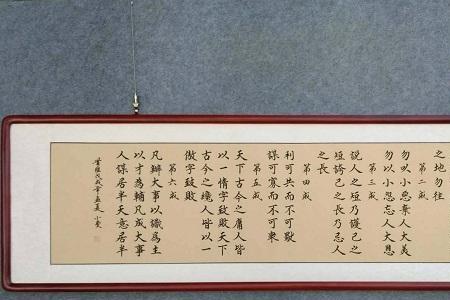 之地勿往
第二戒
勿以小惡棄人大美
勿以小怨忘人大恩
第三戒
說人之短乃護己之
短誇己之長乃忌人
之長
第四戒
利可共而不可獨
謀可寡而不可衆
第五戒
天下古今之庸人皆
以一惰字致敗天下
古今之纔人皆以一
傲字致敗
第六戒
凡辦大事以識為主
以才為輔凡成大事
人謀居半天意居半